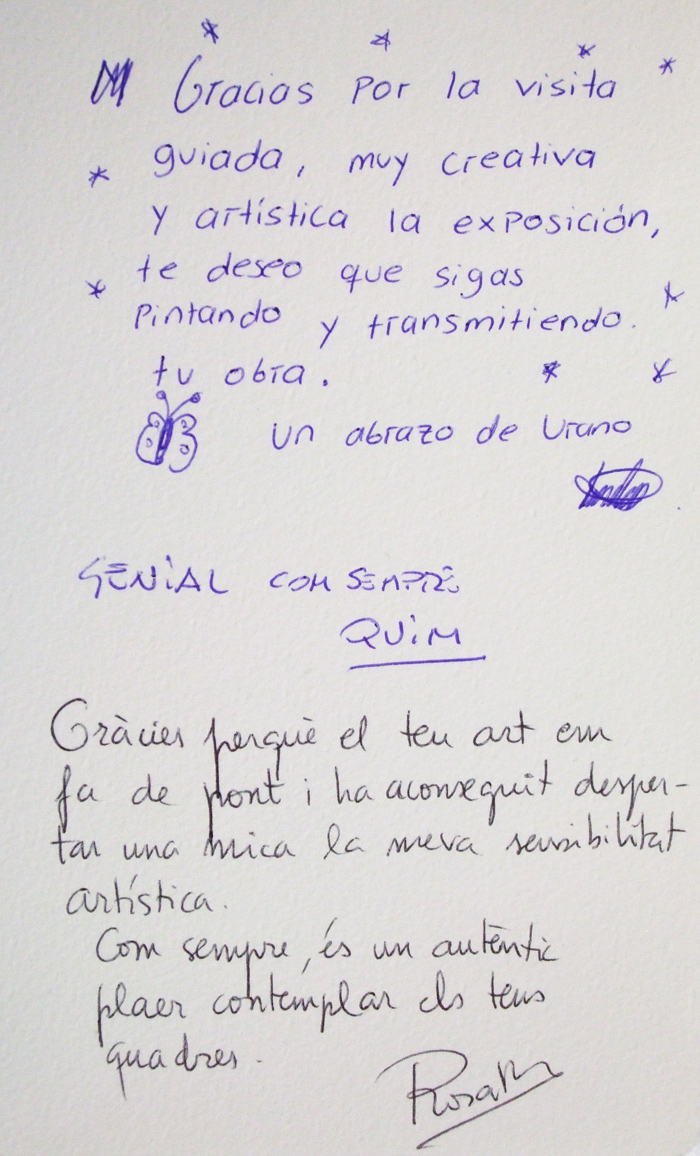 Gracias por la visita
guiada, muy creativa
y artística la exposición,
te deseo que sigas
pintando y transmitiendo.
tu obra.
un abrazo de Urano
GENIAL COM SEMPRE
QUIM
Gràcies perquè el teu art em
fa de pont i ha aconseguit desper-
tar una mica la meva sensibilitat
artística.
Com sempre, és un autèntic
plaer contemplar els teus
quadres.
Rosa M